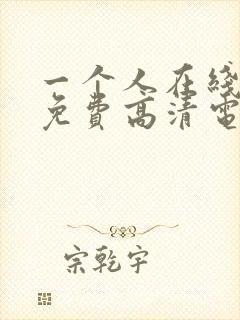 一个人在线
免费高清电
宗乾宇